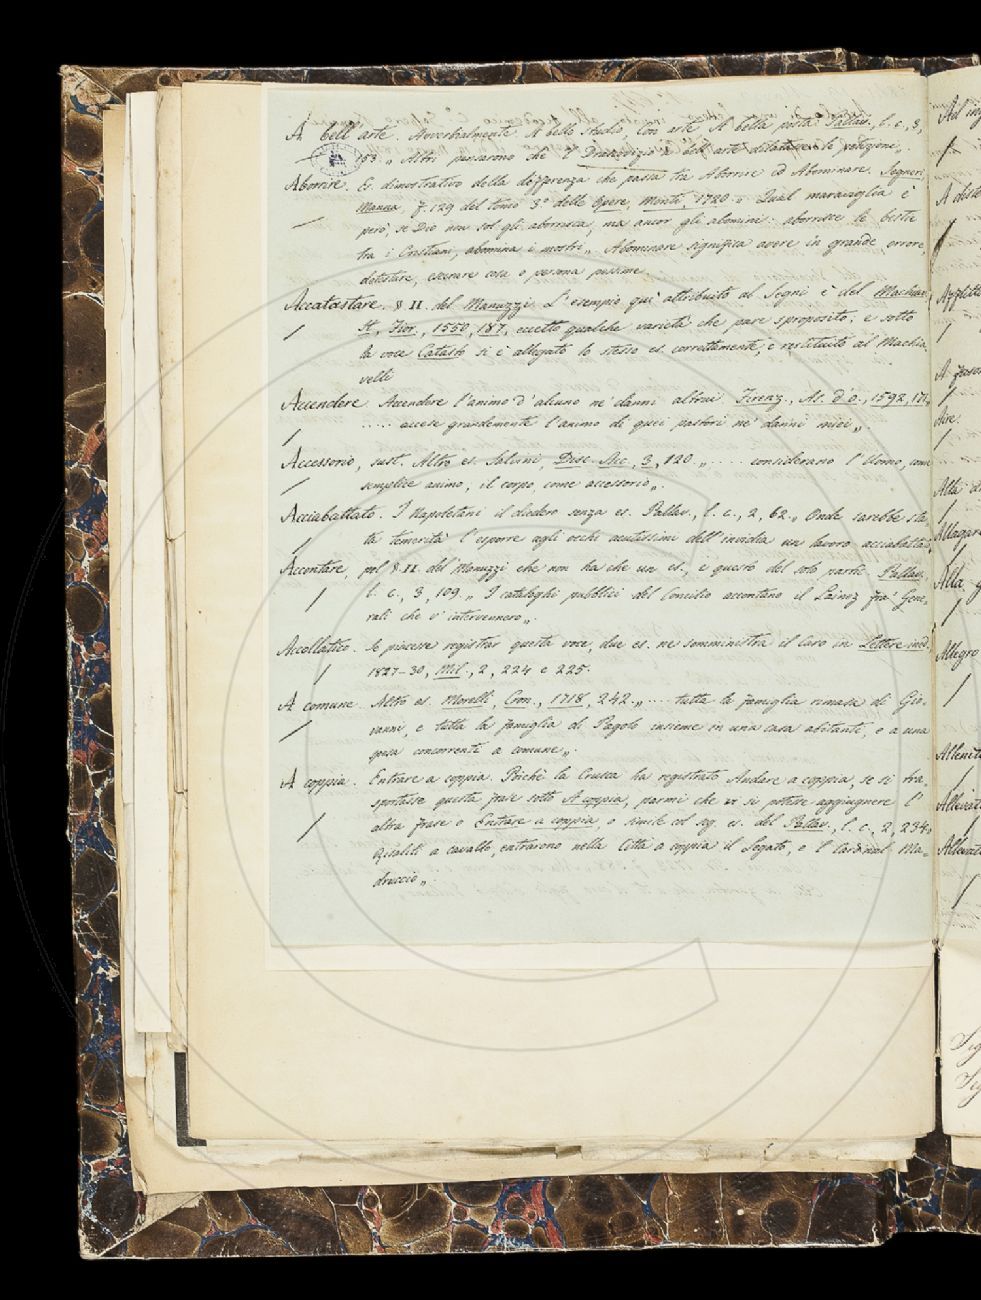 A bell' arte. Avverbialmente. A bello studio, Con arte, A bella posta. Pallav., l. c., 3,
153. „ Altri pensarono che l' ... a bell' arte dilatasse le ...„.
Aborrire. Es. dimostrativo della differenza che passa tra Aborrire ed Abominare. Segneri
Manna, f. 129 del tomo 3° delle Opere, Monti 1720. „ Qual maraviglia è
però, se Dio non sol gli aborrisca, ma ancor gli abomini: aborrisce le bestie
tra i Cristiani, abomina i mostri„. Abominare significa avere in grande orrore,
detestare, esecrare cosa o persona pessima.
Accatastare. § II. del Manuzzi. L'esempio qui attribuito al Segni è del Machiav.
St. Fior., 1550, 187, eccetto qualche varietà che pare sproposito; e sotto
la voce Catasto si è allegato lo stesso es. correttamente, e restituito al Machia-
velli
Accendere. Accendere l'animo d'alcuno ne' danni altrui. Firenz., As. d'o., 1592, 171„
..... accese grandemente l'animo di quei pastori ne' danni miei„.
Accessorio, sust. Altro es. Salvini, Disc. Acc., 3, 120. „ ..... considerano l'Uomo, come
semplice animo; il corpo, come accessorio„.
Acciabattato. I Napoletani il diedero senza es. Pallav., l. c., 2, 62. „ Onde sarebbe sta-
ta temerità l'esporre agli occhi acutissimi dell'invidia un lavoro acciabattato
Accontare, pel § II. del Manuzzi che non ha che un es., e questo del solo partic. Pallav.
l. c., 3, 109. „ I cataloghi pubblici del Concilio accontano il Lainez fra' Gene-
rali che v' intervennero„.
Accollatico. Se piacesse registrar questa voce, due es. ne somministra il Caro in Lettere ined.
1827-30, Mil., 2, 224 e 225.
A comune. Altro es. Morelli, Cron., 1718, 242. „ .... tutta la famiglia rimasa di Gio-
vanni, e tutta la famiglia di Pagolo insieme in una casa abitanti, e a una
spesa concorrenti a comune„.
A coppia. Entrare a coppia. Poichè la Crusca ha registrato Andare a coppia, se si tra-
sportasse questa frase sotto A coppia, parmi che vi si potesse aggiugnere l'
altra frase o Entrare a coppia, o simile col seg. es. del Pallav., l. c., 2, 234„
Risaliti a cavallo, entrarono nella Città a coppia il Legato, e 'l Cardinal Ma-
druccio„.
Ad
A
Afflitto
A
Aire.
Alla
Allagar
Alla
Allegro